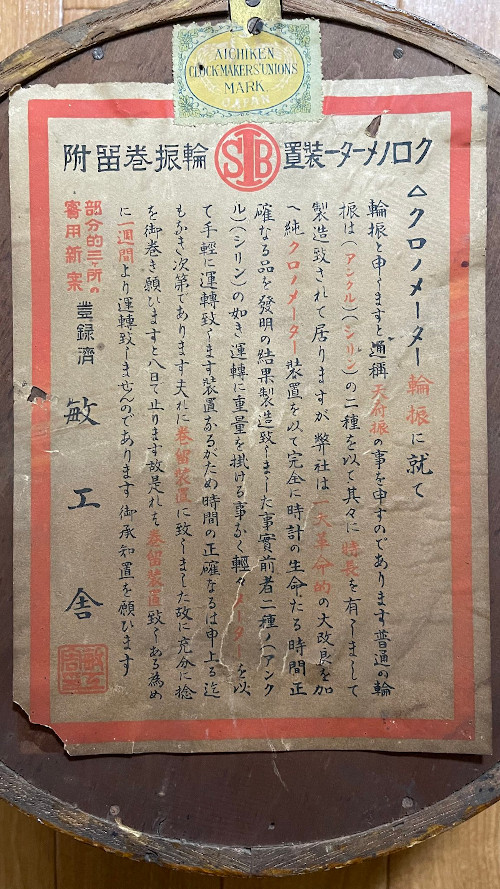 AICHIKEN
CLOCKMAKERS'UNION'S
MARK.
JAPAN
クロノメーター装置 SIB 輪振巻留附
△クロノメーター輪振に就て
輪振と申しますと通稱天府振の事を申すのであります普通の輪
振は(アンクル)(シリン)の二種を以て其々に特長を有しまして
製造致されて居りますが弊社は一大革命的の大改良を加
へ純クロノメーター装置を以て完全に時計の生命たる時間正
確なる品を發明の結果製造致しました事實前者二種ノ(アンク
ル)(シリン)の如き運轉に重量を掛ける事なく輕々メーターを以
て手輕に運轉致します装置なるがため時間の正確なるは申上る迄
もなき次第であります夫れに巻留装置に致しました故に充分に捻
を御巻き願ひますと八日で止ります故是れを巻留装置致しある為め
に一週間より運轉致しませんのであります御承知置を願ひます
部分的三ヶ所の
實用新案
登録濟
敏工舎